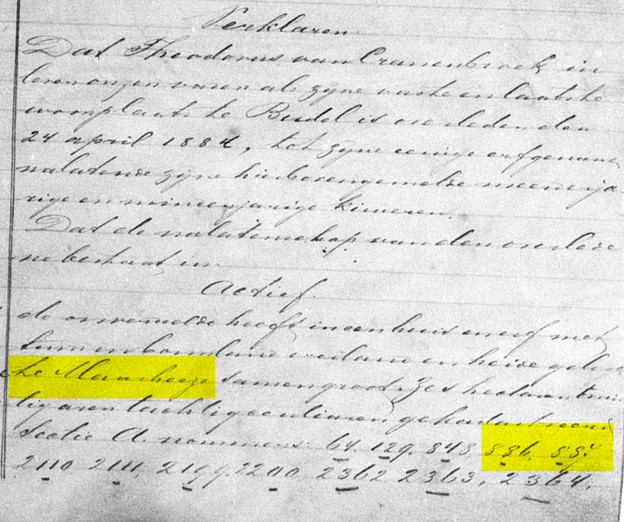 Verklaren
Dat Theodorus van Cranenbroek in
leven onzen vader als zijne vaste en laatste
woonplaats te Budel is overleden den
24 april 1884, tot zijne eenige erfgenam
nalatende zijne hierboven gemelde meerderja
rige en minderjarige kinderen.
Dat de nalatenschap van den overlede
ne bestaat in
Actief.
de overledene heeft in een huis en erf met
tuin en bouwland weiland en heide gele
te Maarheeze samen groot zes hectaren
aren tachtig centiaren gekadastreerd
Sectie A. nommers: 64. 129. 848. 886.
2110 2111. 2199 2200. 2362 2363. 2364.